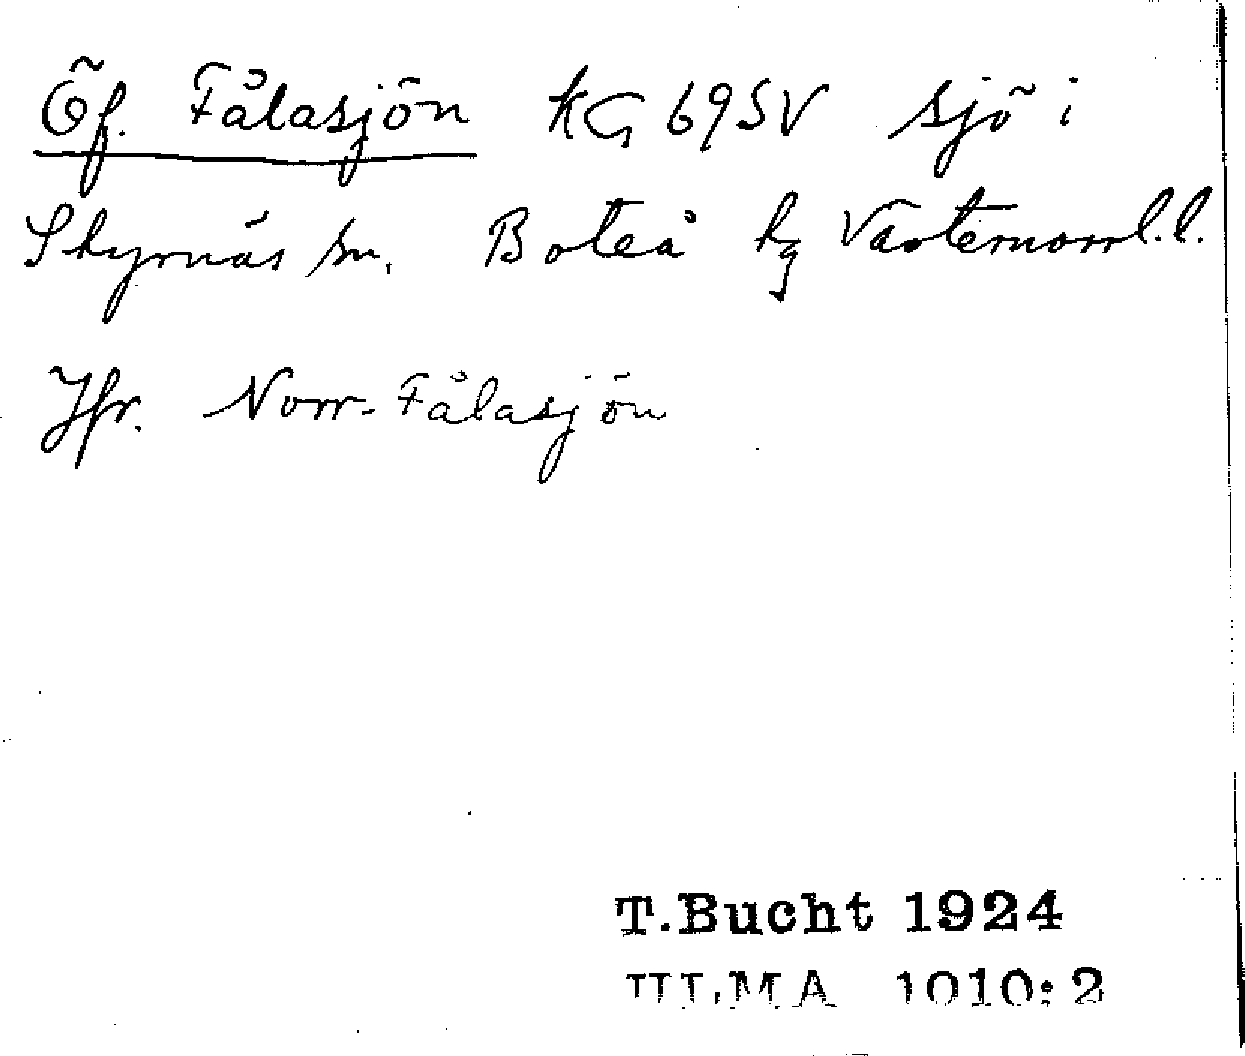 Öf. Fålasjön KG 69SV sjö i
Skyrnäs sn. Boteå hg Västernorrl.l.
Jfr. Norr-Fålasjön
T.Bucht 1924
ULMA 1010:2